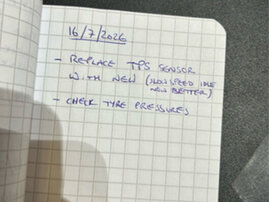 16/7/2026
- REPLACE TPS SENSOR
WITH NEW (SLOW SPEED IDLE
NOW BETTER)
- CHECK TYRE PRESSURES